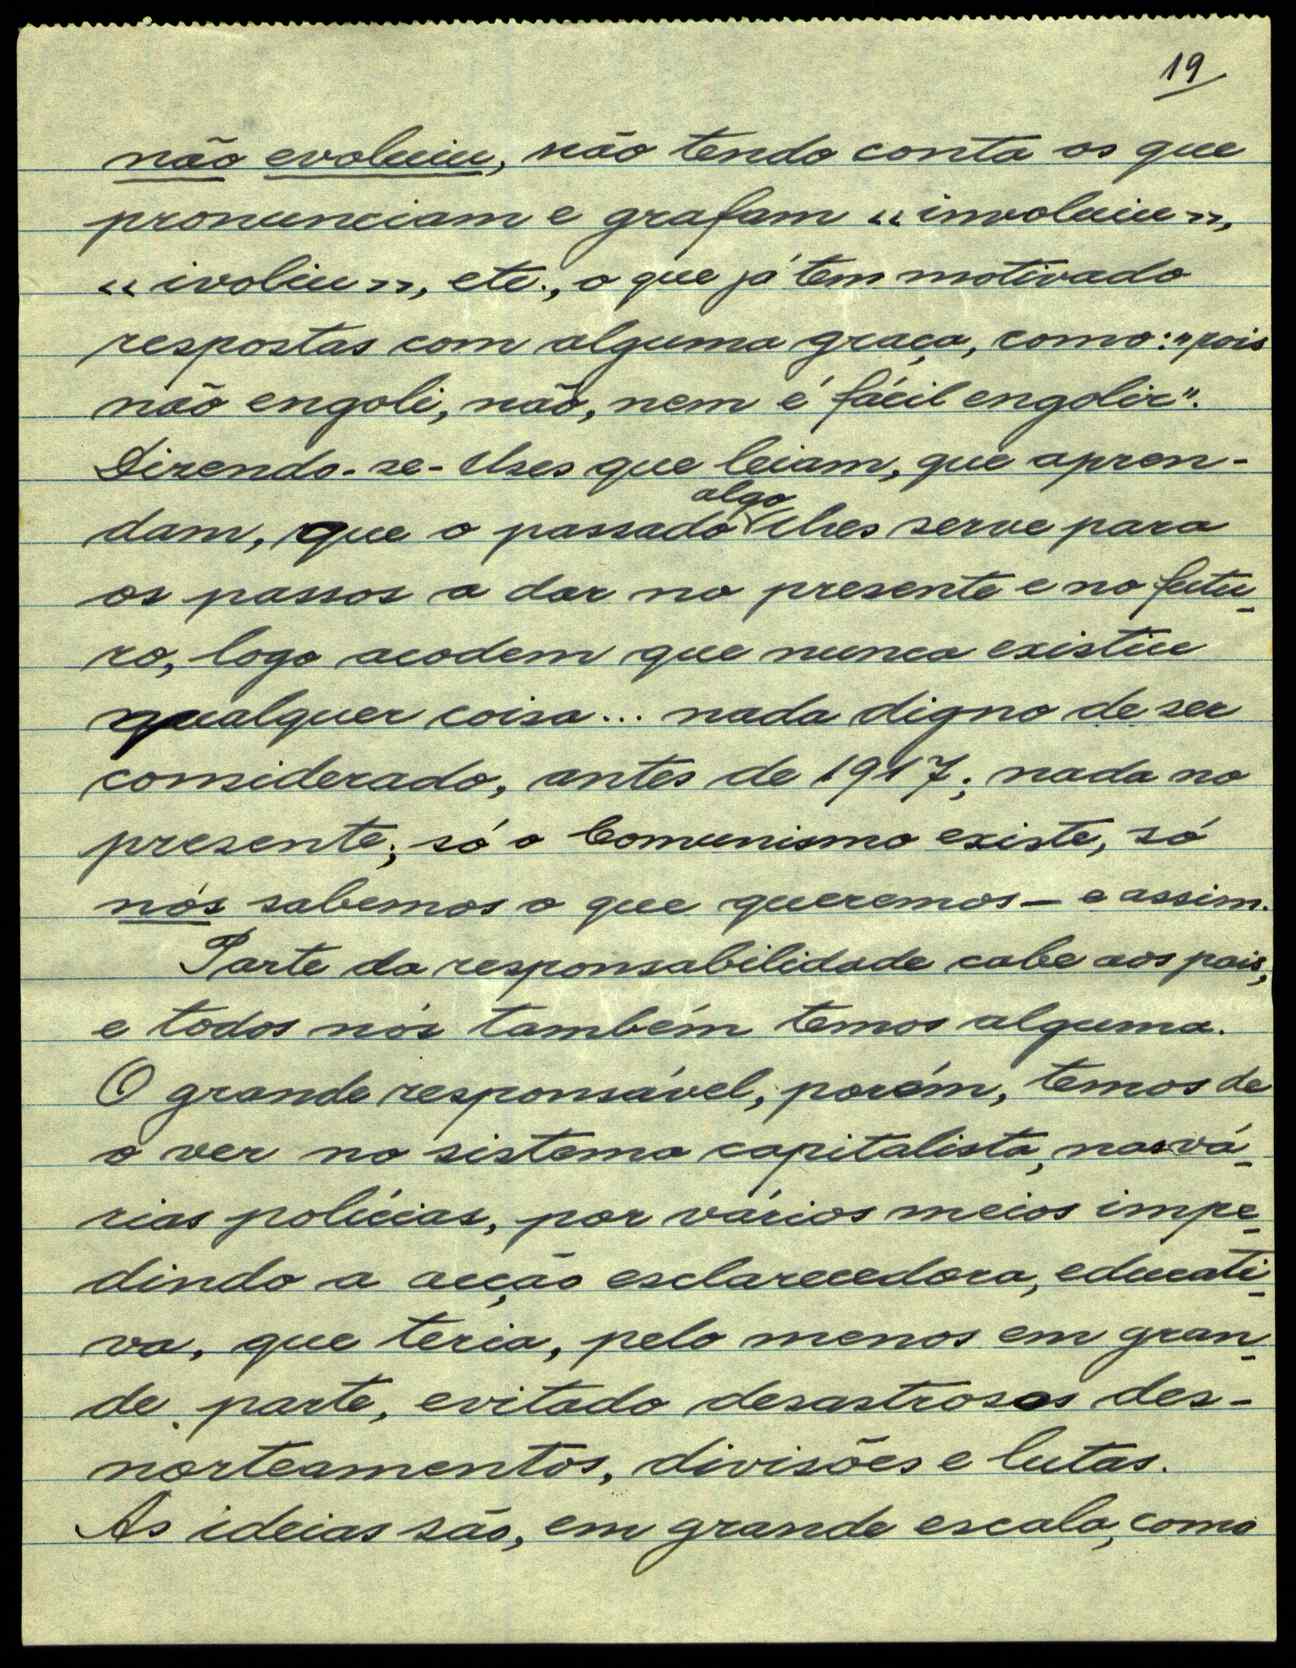 19
não evoluiu, não tendo conta os que
pronunciam e grafam «involuiu»,
«ivoliu», etc., o que já tem motivado
respostas com alguma graça, como: "pois
não engoli, não, nem é fácil engolir".
Dizendo-se-lhes que leiam, que apren-
dam, que o passado algo lhes serve para
os passos a dar no presente e no futu-
ro, logo acodem que nunca existiu
qualquer coisa... nada digno de ser
considerado, antes de 1917; nada no
presente; só o Comunismo existe, só
nós sabemos o que queremos — e assim.
Parte da responsabilidade cabe aos pais,
e todos nós também temos alguma.
O grande responsável, porém, temos de
o ver no sistema capitalista, nas vá-
rias polícias, por vários meios impe-
dindo a acção esclarecedora, educati-
va, que teria, pelo menos em gran-
de parte, evitado desastrosos des-
norteamentos, divisões e lutas.
As ideias são, em grande escala, como